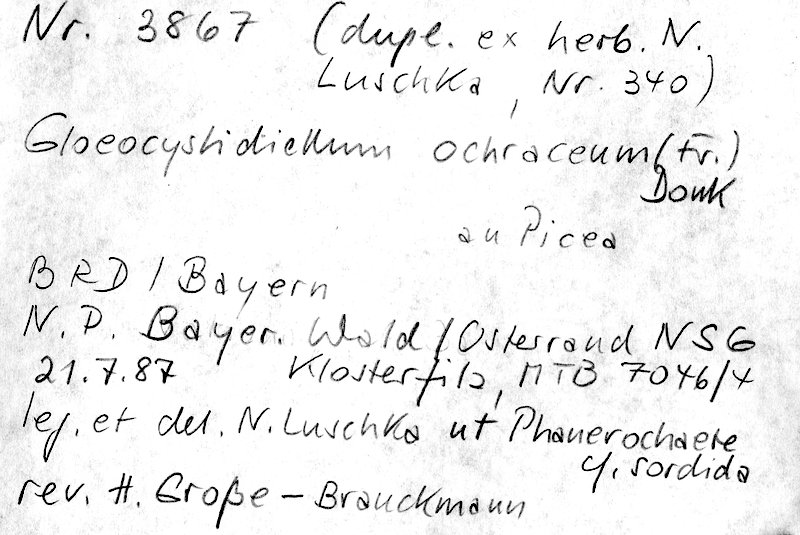 Nr. 3867 (dupl. ex herb. N.
Luschka, Nr. 340)
Gloeocystidiellum ochraceum (Fr.)
Donk
an Picea
BRD / Bayern
N.P. Bayer. Wald / Osterrand NSG
21.7.87 Klosterfilz, MTB 7046/4
leg. et det. N. Luschka ut Phanerochaete
cf. sordida
rev. H. Große-Brauckmann